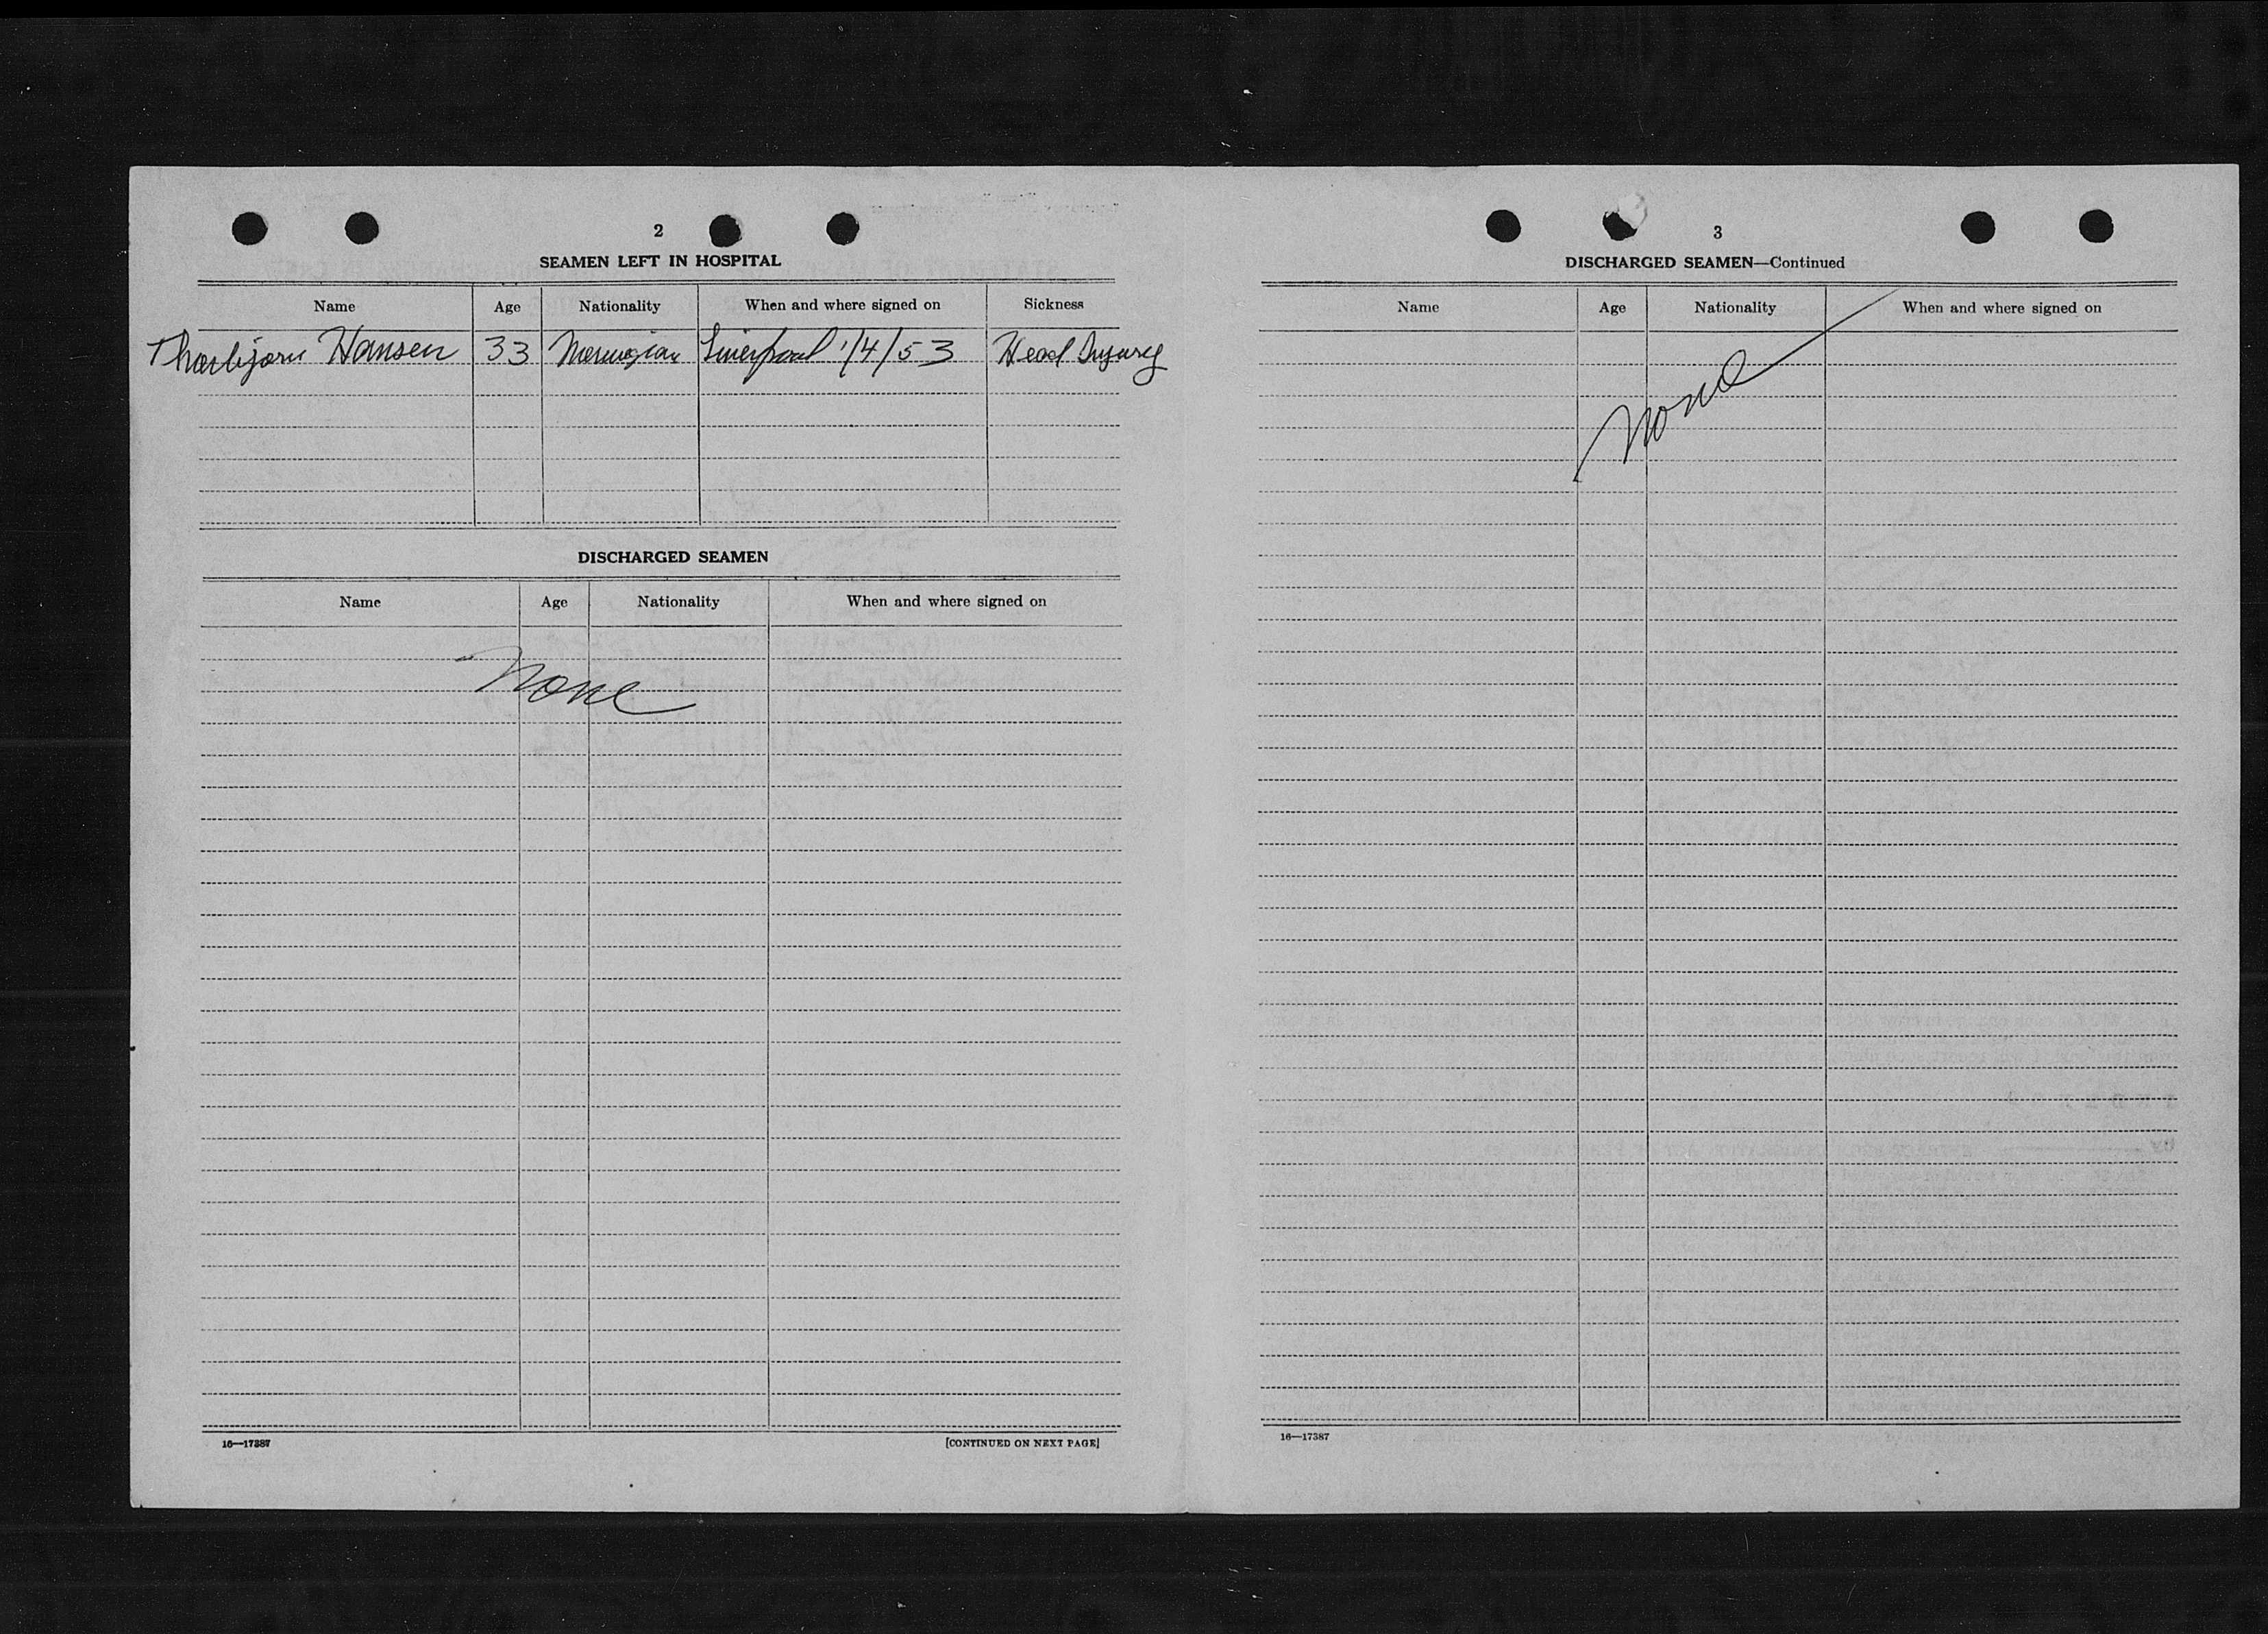 2
SEAMEN LEFT IN HOSPITAL
Name Age Nationality When and where signed on Sickness
Thorbjorn Hansen 33 Norwegian Liverpool 1/4/53 Head Injury
DISCHARGED SEAMEN
Name Age Nationality When and where signed on
None
16—17387
[CONTINUED ON NEXT PAGE]
3
DISCHARGED SEAMEN—Continued
Name Age Nationality When and where signed on
None
16—17387